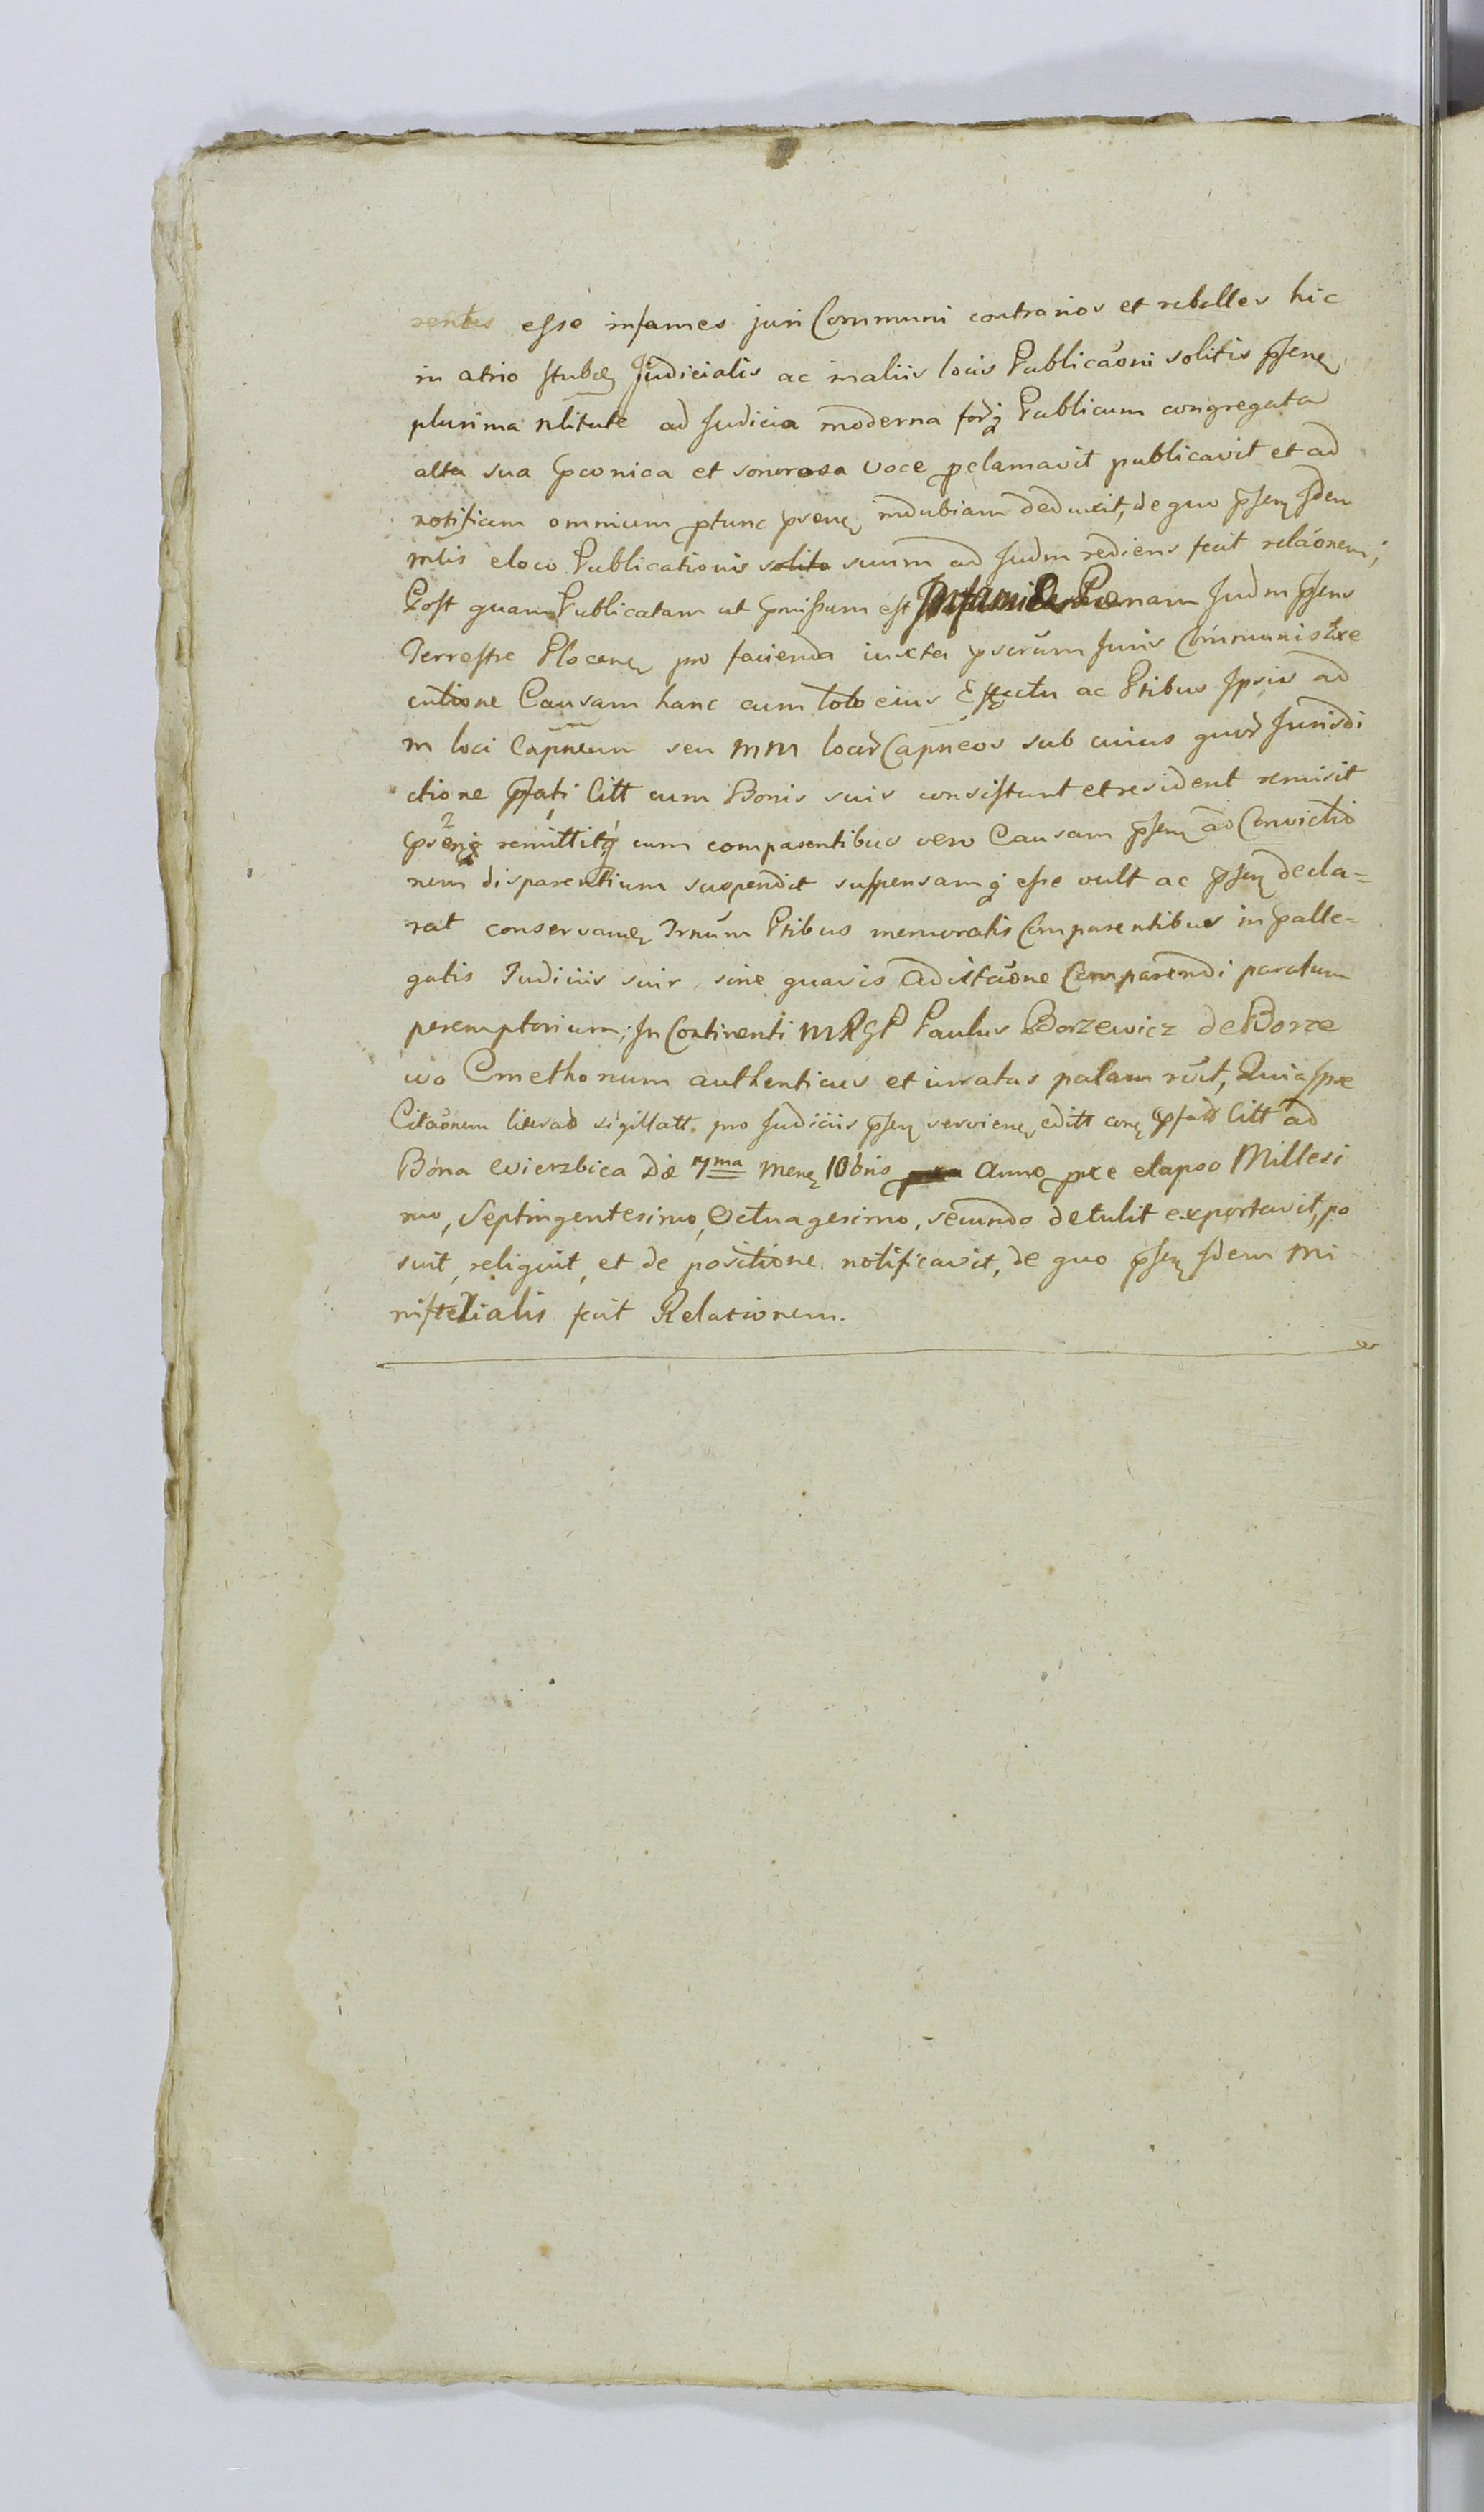 rentes esse infames juri Communi contrarios et rebelles hic
in atrio stubæ Judicialis ac in aliis locis Publicaoni solitis pseñ
plurima nlitate ad Judicia moderna forq Publicum congregata
alta sua pconica et sonorosa voce pclamavit publicavit et ad
notitiam omnium ptunc psenę indubiam deduxit, de quo psenę Idem
mlis e loco Publicationis solito suum ad Judm rediens fecit relaonem;
Post quam Publicatam ut pmissum est Infamiæ Pænam Judm psens
Terrestre Plocenę pro facienda iuxta pscrum Juris Communis Exe
cutione Causam hanc cum toto eius Effectu ac Ptibus Ipsis ad
m loci Capneum seu MM locor Capneos sub cuius quor Jurisdi
ctione pfati Citt cum Bonis suis consistunt et resident remisit
remittitq cum comparentibus vero Causam psenę ad Convictio
nem disparentium suspendit suspensamq esse vult ac psenę decla=
rat conservanę Trnum Ptibus memoratis Comparentibus in palle=
gatis Judiciis suis, sine quavis adcitaone Comparendi paratum
peremptorium; In Continenti MRGP Paulus Borzewicz de Borze
wo Cmethonum authenticus et iuratus palam rūit, Quia Ipse
Citaonem sigillatt. pro Judiciis psenę servienę editt conę pfatt Citt ad
Bona Wierzbica Die 7ma Menę 10bris Anno pxe elapso Millesi
mo, Septingentesimo, Octuagesimo, secundo detulit exportavit, po
suit, reliquit, et de positione notificavit, de quo psenę Idem Mi
nisterialis fecit Relationem.